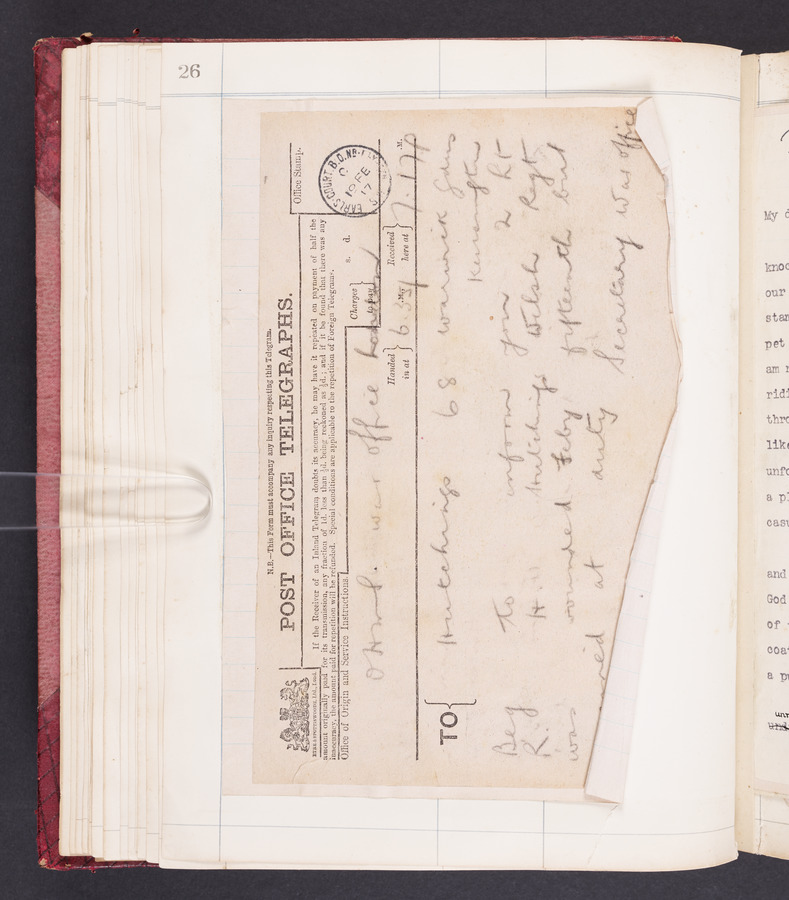 26
N.B.—This Form must accompany any inquiry respecting this Telegram.
POST OFFICE TELEGRAPHS.
Office Stamp.
EARLS COURT B.O.
19 FE
17
If the Receiver of an Inland Telegram doubts its accuracy, he may have it repeated on payment of half the
amount originally paid for its transmission, any fraction of 1d. less than ½d. being reckoned as ½d.; and if it be found that there was any
inaccuracy, the amount paid for repetition will be refunded. Special conditions are applicable to the repetition of Foreign Telegrams.
Office of Origin and Service Instructions.
Charges to pay
s. d.
OHMS. War Office London
Handed in at
6.35
.M.
Received here at
7.17p
.M.
TO
Hutchings 68 Warwick Gdns
Kensington
Beg to inform you 2 Lt
R. H. Hutchings Welsh Regt
was wounded Feby fifteenth but
at duty
Secretary War Office
My d
knoc
our
star
pet
am
ridi
thro
like
unfo
a pl
casu
and
God
of
coat
a pu